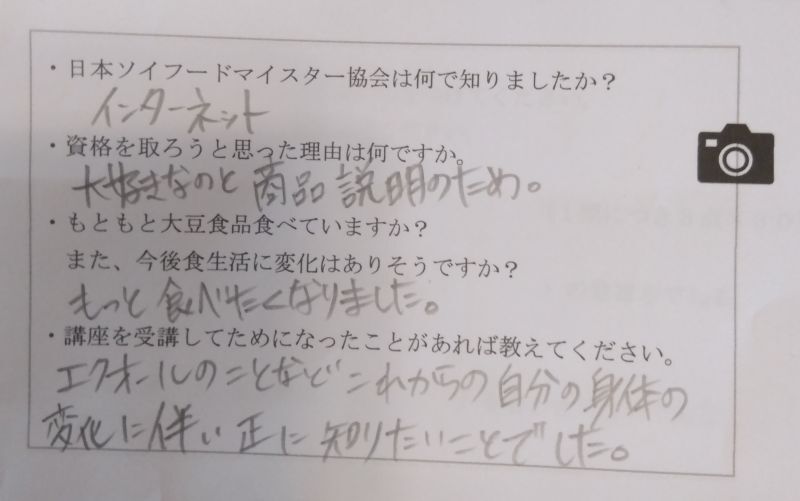 ・日本ソイフードマイスター協会は何で知りましたか？
インターネット
・資格を取ろうと思った理由は何ですか。
大好きなのと商品説明のため。
・もともと大豆食品食べていますか？
また、今後食生活に変化はありそうですか？
もっと食べたくなりました。
・講座を受講してためになったことがあれば教えてください。
エクオールのことなどこれからの自分の身体の
変化に伴い正に知りたいことでした。